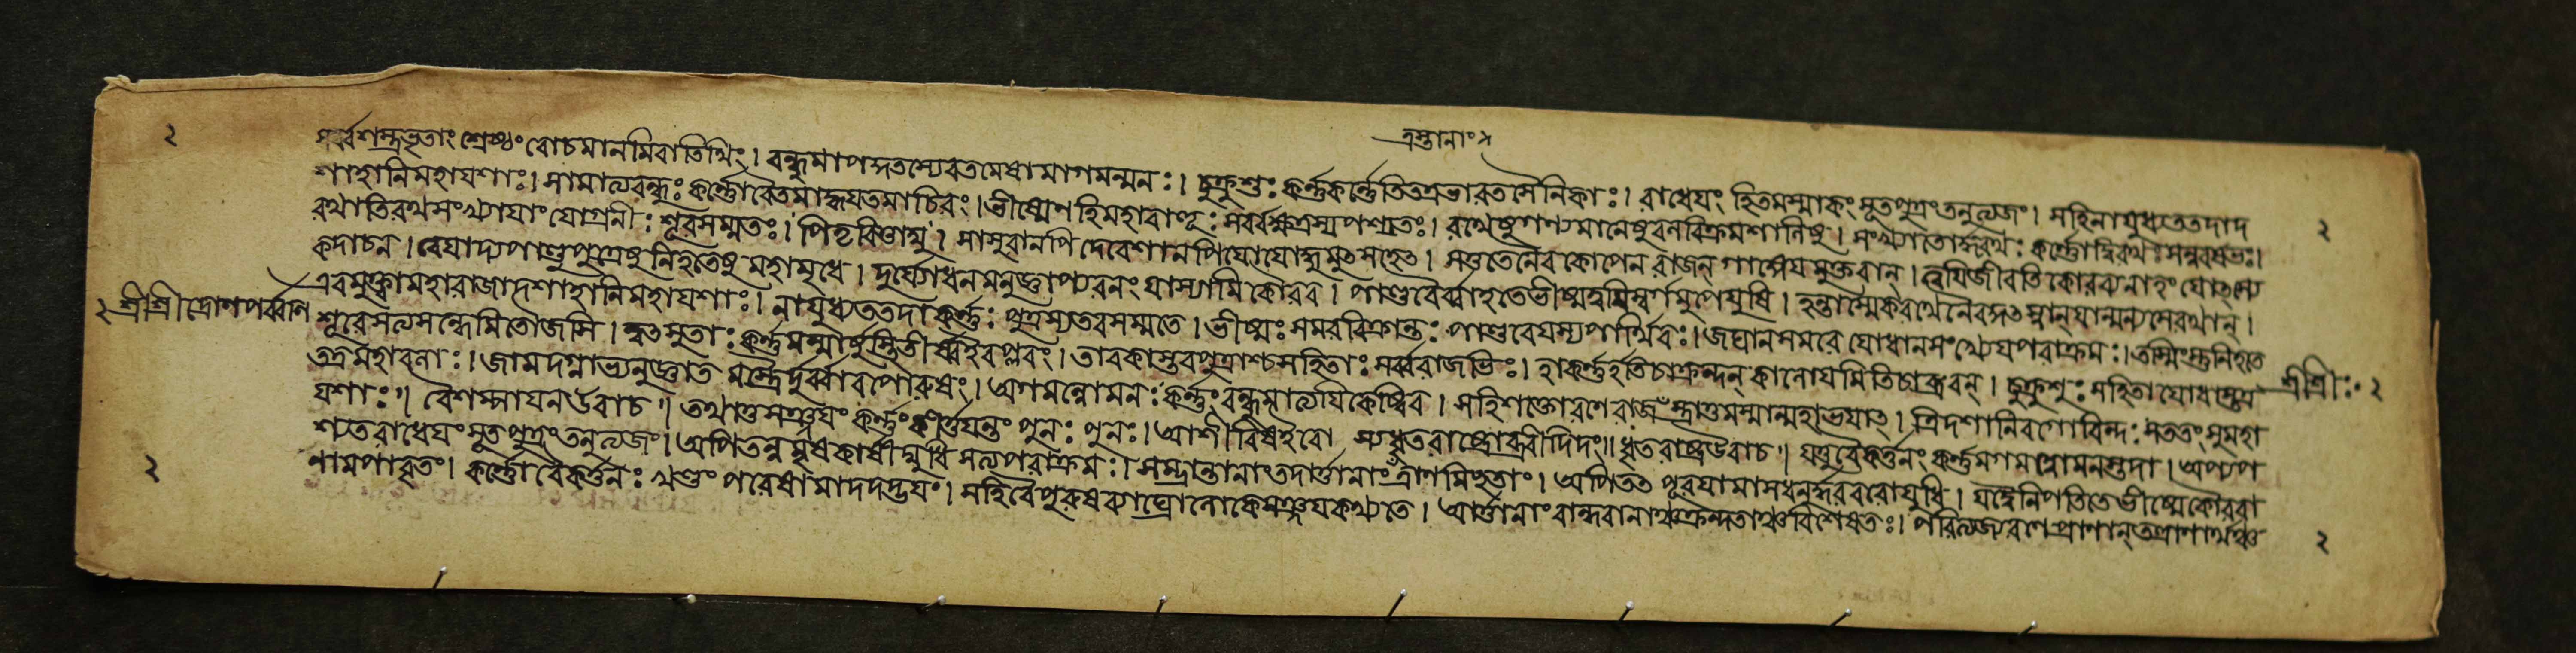 ত্রস্তানাং২
২ সর্ব্বশস্ত্রভৃতাং শ্রেষ্ঠং রোচমানমিবাতিথিং। বন্ধুমাপদ্গতস্যেব তমেধামাগমন্মনঃ। চুক্রুশুঃ কর্ণ্ণকর্ণ্ণেতি তত্রভারতসৈনিকাঃ। রাধেযং হিতমস্মাকং সূতপুত্রং তনুত্যজং। সহিনাযুধ্যততদাদ
শাহানিমহাযশাঃ। সামাত্যবন্ধুঃ কর্ণ্ণোবৈতমাহ্বযতমাচিরং। ভীষ্মেণহিমহাবাহুঃ সর্ব্বক্ষত্রস্যপশ্যতঃ। রথেষুগণ্যমানেষুবলবিক্রমশালিষু। সংখ্যাতোর্দ্ধরথঃ কর্ণ্ণোদ্বিরথঃ সন্নরর্ষভঃ। ২
রথাতিরথসংখ্যাযাং যোগ্রনীঃ শূরসম্মতঃ। পিতৃবিত্তাম্বু সাসুরানপিদেবেশানপিযোযোদ্ধুমুৎসহেৎ। সতুতেনৈবকোপেন রাজন্ গাঙ্গেযমুক্তবান্। ত্বযিজীবতিকৌরব্যনাহং যোৎস্যে
কদাচন। ত্বেযাদ্যপাণ্ডুপুত্রেষুনিহতেষুমহামৃধে। দুর্য্যোধনমনুজ্ঞাপ্যবনং যাস্যামিকৌরব। পাণ্ডবৈর্ব্বাহতেভীষ্মত্বযিস্বর্গমুপেযুষি। হন্তাস্ম্যেকরথেনৈবকৃৎস্নান্ যান্মন্যসেরথান্।
এবমুক্ত্বামহারাজাদশাহানিমহাযশাঃ। নাযুধ্যততদাকর্ণ্ণঃ পুত্রস্যতবসম্মতে। ভীষ্মঃ সমরবিক্রান্তঃ পাণ্ডবেযস্যপার্থিবঃ। জঘানসমরেযোধানসংখ্যেযপরাক্রমঃ। তস্মিংস্তুনিহতে
২ শ্রীশ্রীদ্রোণপর্ব্বনি শূরেসত্যসন্ধেমিতৌজসি। ত্বৎসুতাঃ কর্ণ্ণমস্মার্ষুস্তিতীর্ষবইবপ্লবং। তাবকাস্তবপুত্রাশ্চসহিতাঃ সর্ব্বরাজভিঃ। হাকর্ণ্ণইতিচাক্রন্দন্ কালোযমিতিচাব্রুবন্। চুক্রুশুঃ সহিতাযোধাস্তত্র শ্রীশ্রীঃ ২
তত্রমহাবলাঃ। জামদগ্ন্যাভ্যনুজ্ঞাত মস্ত্রেদুর্ব্বারপৌরুষং। অগমন্নোমনঃ কর্ণ্ণং বন্ধুমাত্যযিকেষ্বিব। সহিশক্তোরণেরাজঁস্ত্রাতুমস্মান্মহাভযাৎ। ত্রিদশানিবগোবিন্দঃ সততং সুমহা
যশাঃ॥ বৈশম্পাযনউবাচ॥ তথাতুসঞ্জযং কর্ণ্ণং কীর্ত্তযন্তং পুনঃ পুনঃ। আশীবিষইবো স্যধৃতরাষ্ট্রোব্রবীদিদং॥ ধৃতরাষ্ট্রউবাচ॥ যত্তুবৈকর্ত্তনং কর্ণ্ণমগমদ্বোমনস্তদা। অপ্যপ
শ্যতরাধেযং সূতপুত্রং তনুত্যজং। অপিতন্নমৃষাকার্ষীদ্যুধিসত্যপরাক্রমঃ। সম্ভ্রান্তানাংতদার্ত্তানাং ত্রাণমিচ্ছতাং। অপিতৎপূরযামাসধনুর্দ্ধরবরোযুধি। যদ্বৈনিপতিতেভীষ্মেকৌরবা
২ ণামপাবৃতং। কর্ণ্ণোবৈকর্ত্তনঃ খণ্ডং পরেষামাদদদ্ভযং। সহিবৈপুরুষব্যাঘ্রোলোকেসঞ্জযকথ্যতে। আর্ত্তানাং বান্ধবানাঞ্চক্রন্দতাঞ্চবিশেষতঃ। পরিত্যজ্যরণেপ্রাণান্ তৎপ্রাণার্থঞ্চ ২